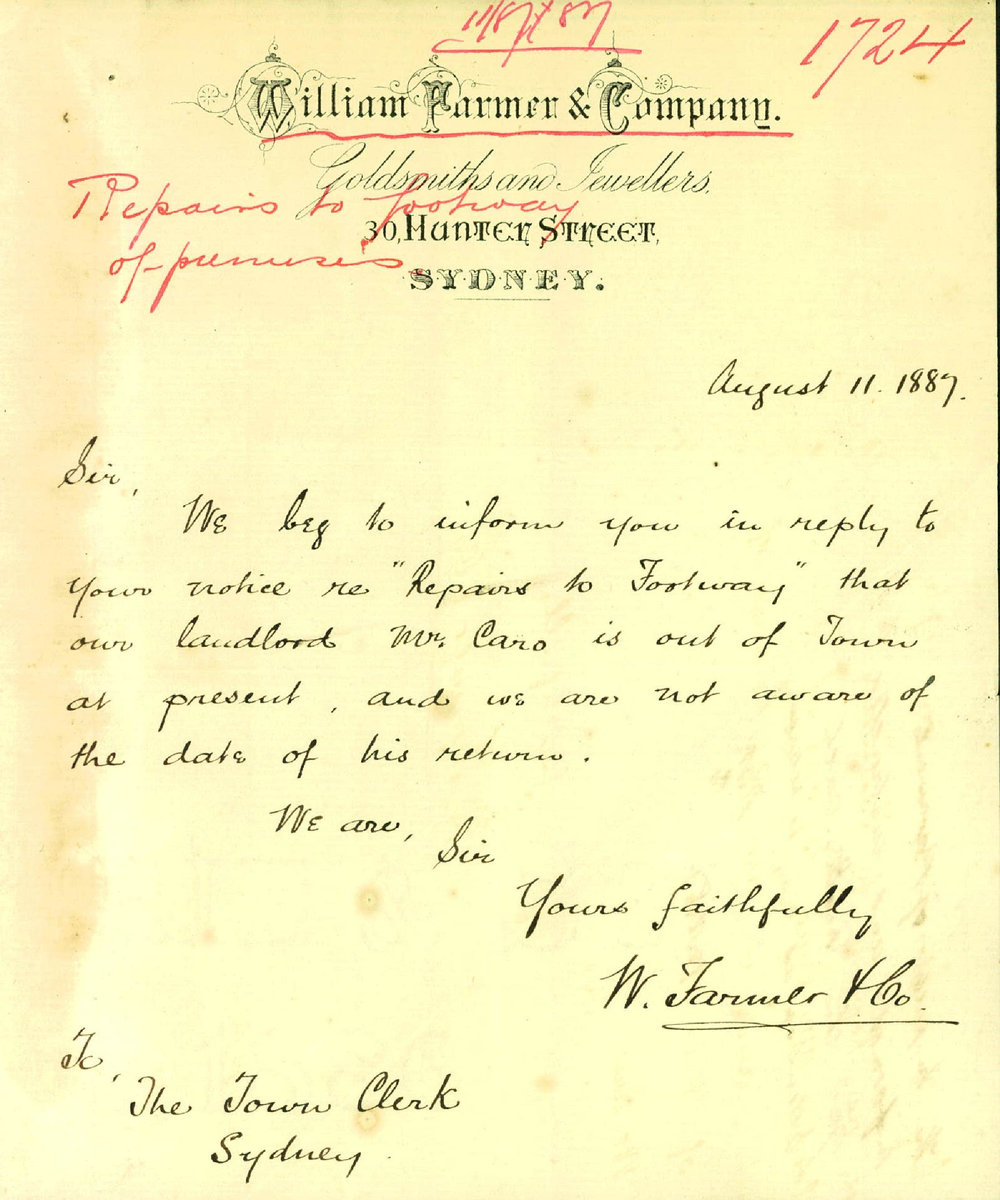 1724
William Farmer & Company.
Goldsmiths and Jewellers,
Repairs to footway
30, Hunter Street,
of premises.
SYDNEY.
August 11. 1887.
Sir,
We beg to inform you in reply to
your notice re "Repairs to Footway" that
our landlord Mr. Caro is out of Town
at present, and we are not aware of
the date of his return.
We are,
Sir
Yours faithfully
W. Farmer & Co.
To,
The Town Clerk
Sydney.